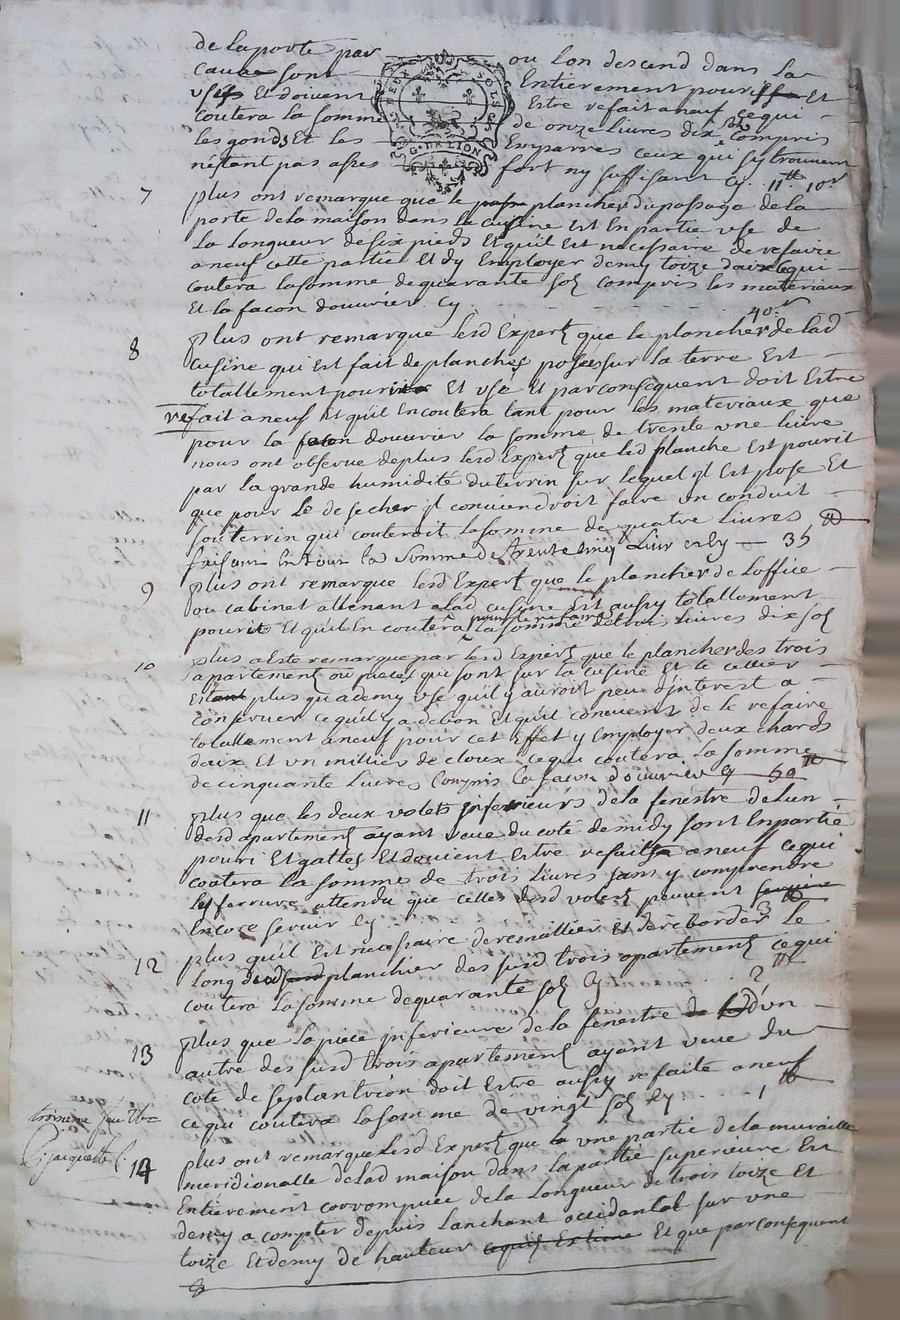 de la porte par ou lon descend dans la
cave sont Entierement pouri Et
usé Et doivent Estre refait aneuf ce qui
coutera la somme de onze livres dix sols compris
les gonds Et les Emparres ceux qui sy trouvent
nétant pas asses fort ny suffisant cy. 11 ⁠tt 10 s
7 plus ont remarque que le plancher du passage de la
porte de la maison dans la cuisine Est En partie use de
la longueur de six pieds Et quil Est necessaire de refaire
aneuf cette partie Et dy Employer demy toize daix ce qui
coutera la somme de quarante sols compris les materiaux
Et la facon douvrier. Cy. 40 s
8 plus ont remarque lesd Expertz que le plancher de lad
cuisine qui Est fait de planches posées sur la terre Est
totallement pouri Et usé Et par consequent doit Estre
refait aneuf Et quil En coutera tant pour les materiaux que
pour la facon douvrier la somme de trente une livre
nous ont observe de plus lesd Expertz que led planche Est pourit
par la grande humidité du terrin sur lequel jl Est posé Et
que pour le desecher jl conviendroit faire un conduit
souterrin qui couteroit la somme de quatre livres
faisant En tout la somme de trente cinq livres Cy — 35 tt
9 plus ont remarque lesd Expertz que le plancher de loffice
ou cabinet attenant a lad cuisine Est aussy totallement
pouri Et quil En coutera pour le refaire la somme de trois livres dix sols
10 plus a Esté remarque par lesd Expertz que le plancher des trois
apartement ou pieces qui sont sur la cuisine Et le cellier
Estant plus qua demy use quil y auroit peu djnterest a
conserver ce quil y a de bon Et quil convient de le refaire
totallement aneuf pour cet Effet y Employer deux chards
daix Et un millier de cloux ce qui coutera la somme
de cinquante livres Compris la facon douvrier Cy — 50 tt
11 plus que les deux volets jnferieurs de la fenestre de lun
desd apartement ayant veue du coté de midy sont En partie
pouri Et gattes Et doivent Estre refaits aneuf ce qui
coutera la somme de trois livres sans y comprendre
la ferrure attendu que celles desd volets peuvent
Encore servir Cy 3 tt
12 plus quil Est necessaire de remaillier Et de reborder le
long plancher des susd trois apartement ce qui
coutera la somme de quarante sols Cy 2 tt
13 plus que la piece jnferieure de la fenestre dun
autre des susd trois apartement ayant veue du
coté de septantrion doit Estre aussy refaite aneuf
ce qui coutera la somme de vingt sols Cy 1 tt
troisieme feuillet
Jacquette
14 plus ont remarque lesd Expertz que la une partie de la muraille
meridionalle de lad maison dans la partie superieure Est
Entierement corrompüe de la longueur de trois toize Et
demy a compter depuis lanchant occidantal sur une
toize Et demy de hauteur Et que par consequent
DEUX SOLS
G. DE LION